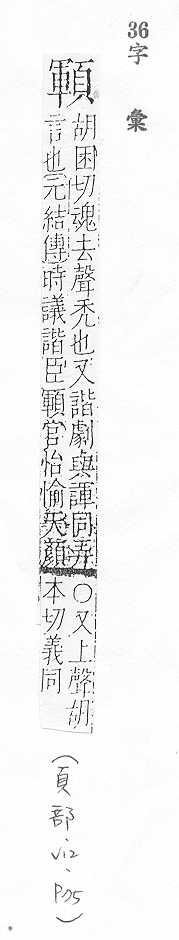 36字 彙
顐
胡困切魂去聲禿也又諧劇與諢同弄○又上聲胡
言也元結傳時議諧臣顐官怡愉天顏本切義同
(頁部、V12、P25)